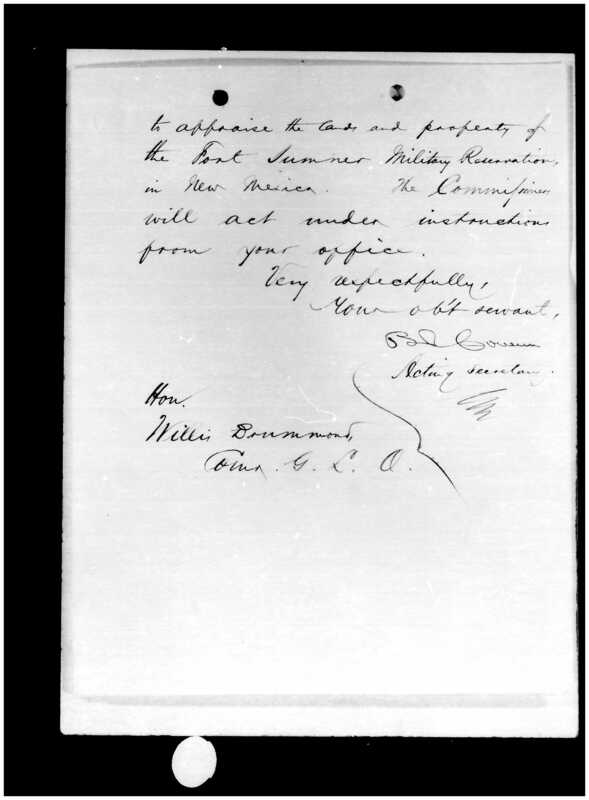 to appraise the lands and property of
the Fort Sumner Military Reservation,
in New Mexico. The Commissioners
will act under instructions
from your office.
Very respectfully,
Your ob't servant,
B R Cowen
Acting Secretary.
Hon.
Willis Drummond,
Comr. G. L. O.